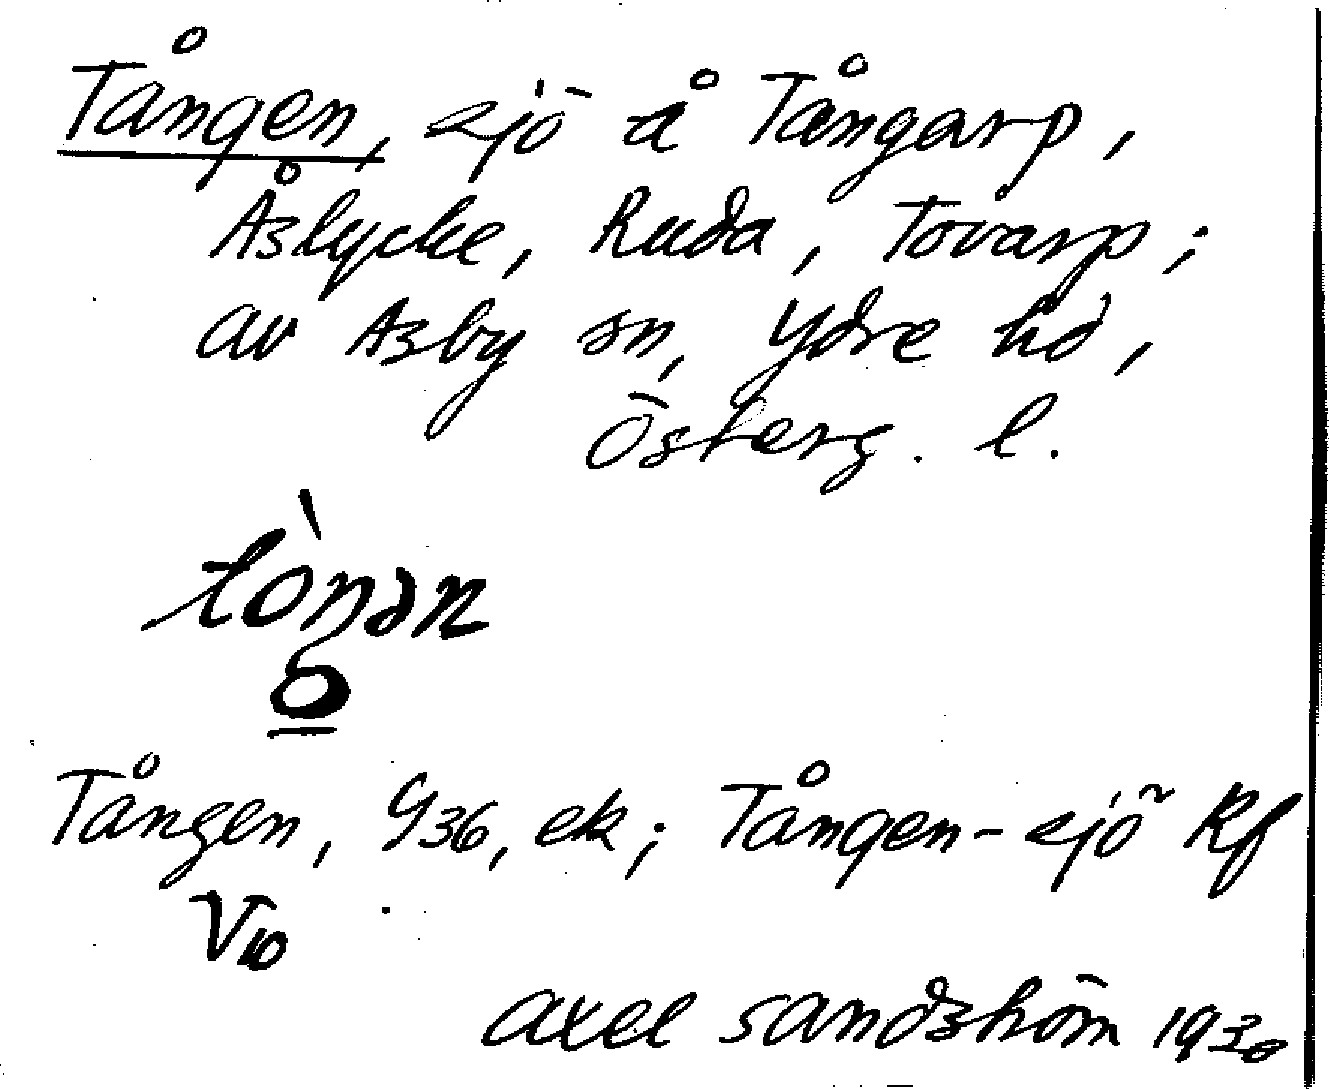 Tången, sjö å Tångarp,
Åslycke, Ruda, Tovarp;
av Asby sn, Ydre hd,
Österg. l.
tòŋən
Tången, G36, ek; Tången-sjö Rf
V10
Axel Sandström 1930